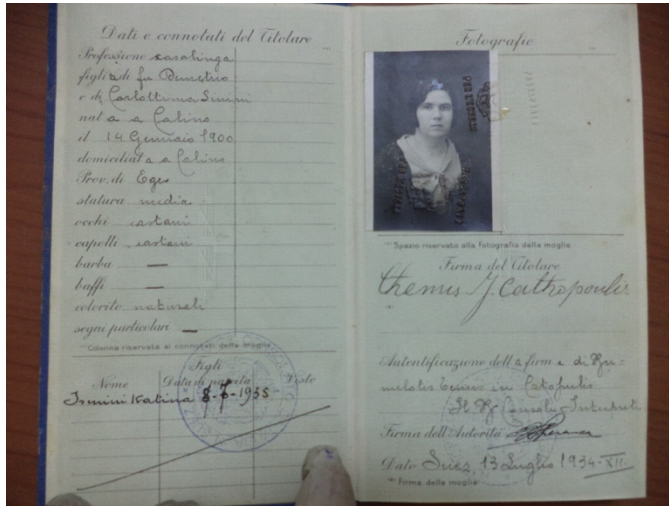 Dati e connotati del Titolare
Professione casalinga
figlia di fu Demetrio
e di
nata a Calino
il 14 Gennaio 1900
domiciliata a Calino
Prov. di Egeo
statura media
occhi castani
capelli castani
barba —
baffi —
colorito naturale
segni particolari —
Colonna riservata ai connotati della moglie
Figli
Nome Data di nascita Visto
Ismini Katina 8-7-1935
Fotografie
Spazio riservato alla fotografia della moglie
Firma del Titolare
Themis J. Cathopoulis
Autentificazione della firma di
in
Il Console
Firma dell'Autorità
Data Suez, 13 Luglio 1934-XII
Firma della moglie